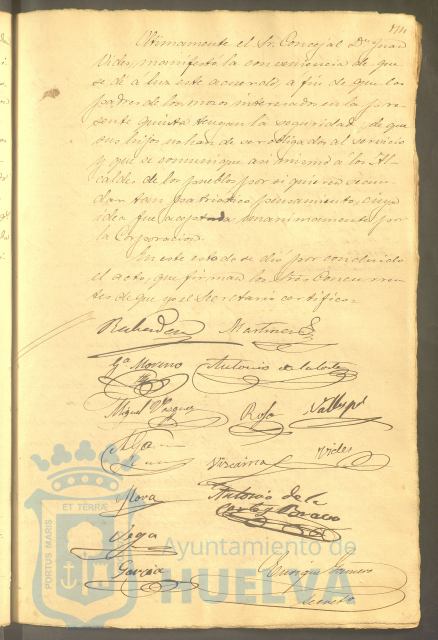 Ultimamente el Sr. Concejal Dn. Juan
Vides, manifestó la conveniencia de que
se dé á luz este acuerdo, á fin de que los
padres de los mozos interesados en la pre-
sente quinta tengan la seguridad, de que
sus hijos no han de ser obligados al servicio
y que se comunique asi mismo á los Al-
caldes de los pueblos por si quieren secun-
dar tan patriotico pensamiento, cuya
idea fue aceptada unanimamente por
la Corporacion.
En este estado se dió por concluido
el acto, que firman los Sres. Concurren-
tes de que yo el Secretario certifico=
Martinez
Ga. Moreno Antonio de la Corte
Miguel Vazquez Rofo
Vizcaina Vides
Mora Antonio de la
Corte y Bravo
Vega
Garcia Enrique
ET TERRÆ
PORTUS MARIS
CUSTODIA
Ayuntamiento de
HUELVA